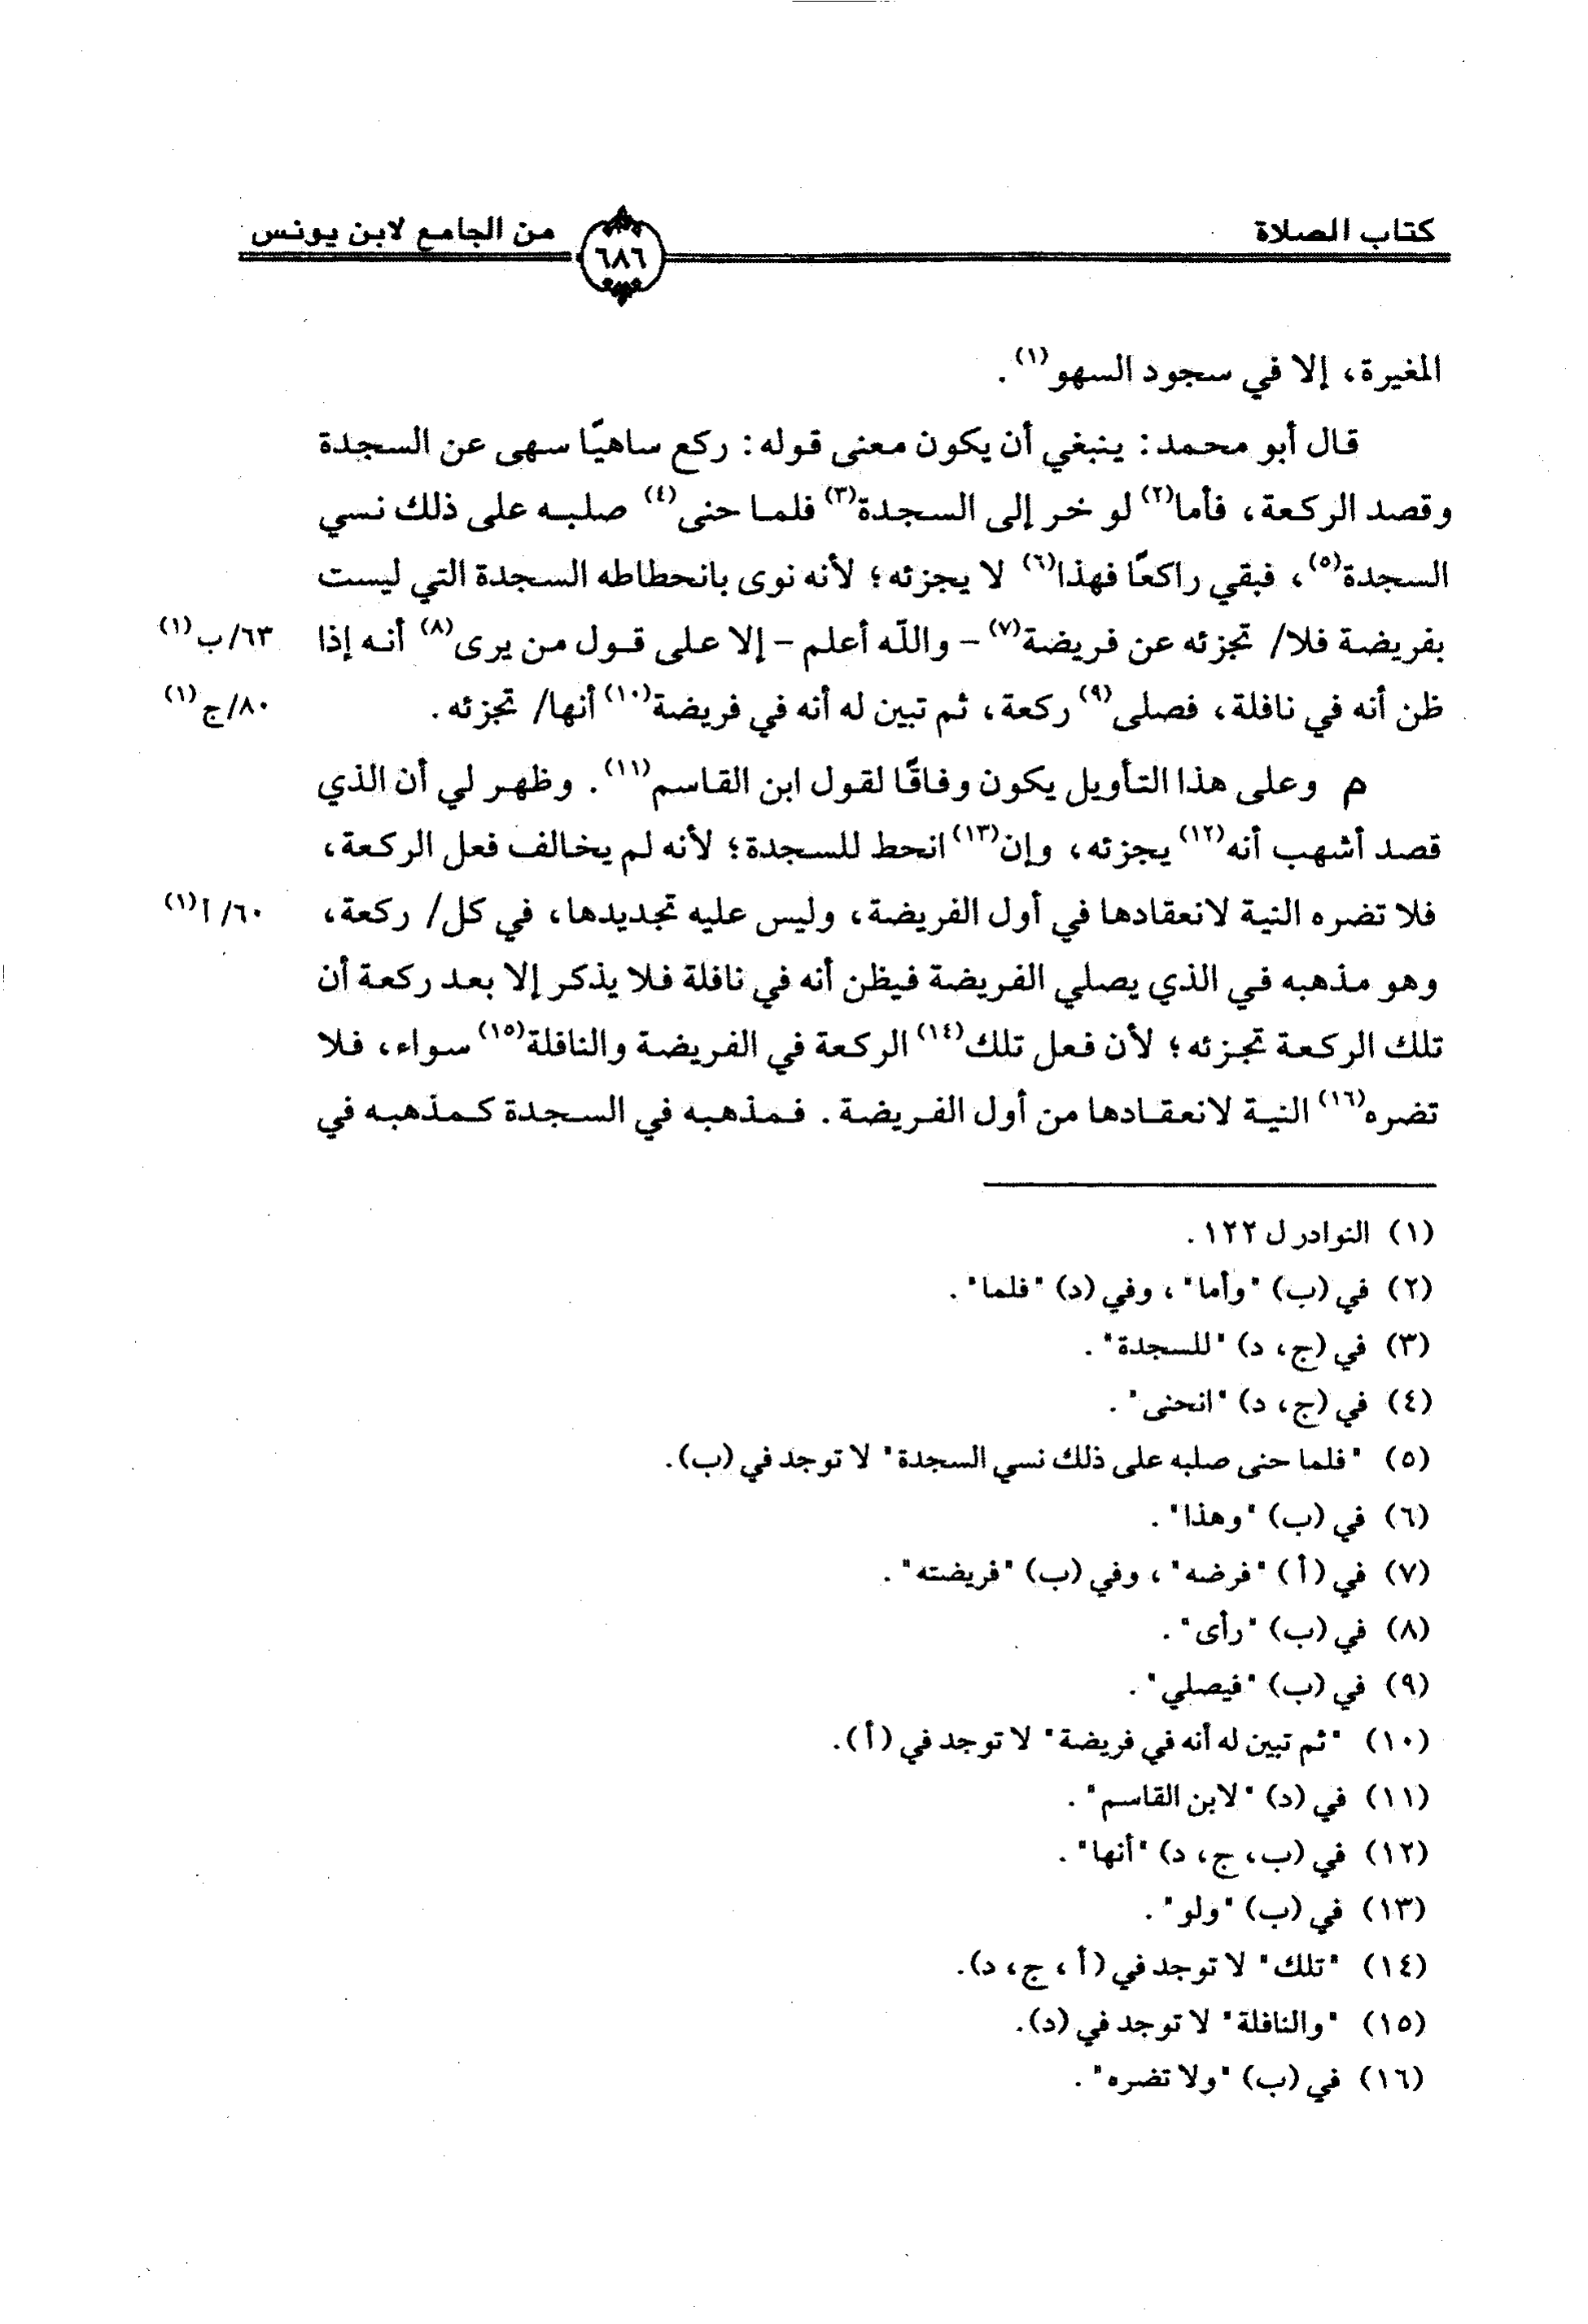 كتاب الصلاة ٦٨٦ من الجامع لابن يونس
المغيرة، إلا في سجود السهو(١).
قال أبو محمد: ينبغي أن يكون معنى قوله: ركع ساهيًا سهى عن السجدة
وقصد الركعة، فأما(٢) لو خر إلى السجدة(٣) فلما حنى(٤) صلبه على ذلك نسي
السجدة(٥)، فبقي راكعًا فهذا(٦) لا يجزئه؛ لأنه نوى بانحطاطه السجدة التي ليست
بفريضة فلا/ تجزئه عن فريضة(٧) - والله أعلم - إلا على قول من يرى(٨) أنه إذا ٦٣/ب(١)
ظن أنه في نافلة، فصلى(٩) ركعة، ثم تبين له أنه في فريضة(١٠) أنها/ تجزئه. ٨٠/ج(١)
م وعلى هذا التأويل يكون وفاقًا لقول ابن القاسم(١١). وظهر لي أن الذي
قصد أشهب أنه(١٢) يجزئه، وإن(١٣) انحط للسجدة؛ لأنه لم يخالف فعل الركعة،
فلا تضره النية لانعقادها في أول الفريضة، وليس عليه تجديدها، في كل/ ركعة، ٦٠/أ(١)
وهو مذهبه في الذي يصلي الفريضة فيظن أنه في نافلة فلا يذكر إلا بعد ركعة أن
تلك الركعة تجزئه؛ لأن فعل تلك(١٤) الركعة في الفريضة والنافلة(١٥) سواء، فلا
تضره(١٦) النية لانعقادها من أول الفريضة. فمذهبه في السجدة كمذهبه في
(١) النوادر ل ١٢٢.
(٢) في (ب) "وأما"، وفي (د) "فلما".
(٣) في (ج، د) "للسجدة".
(٤) في (ج، د) "انحنى".
(٥) "فلما حنى صلبه على ذلك نسي السجدة" لا توجد في (ب).
(٦) في (ب) "وهذا".
(٧) في (أ) "فرضه"، وفي (ب) "فريضته".
(٨) في (ب) "رأى".
(٩) في (ب) "فيصلي".
(١٠) "ثم تبين له أنه في فريضة" لا توجد في (أ).
(١١) في (د) "لابن القاسم".
(١٢) في (ب، ج، د) "أنها".
(١٣) في (ب) "ولو".
(١٤) "تلك" لا توجد في (أ، ج، د).
(١٥) "والنافلة" لا توجد في (د).
(١٦) في (ب) "ولا تضره".